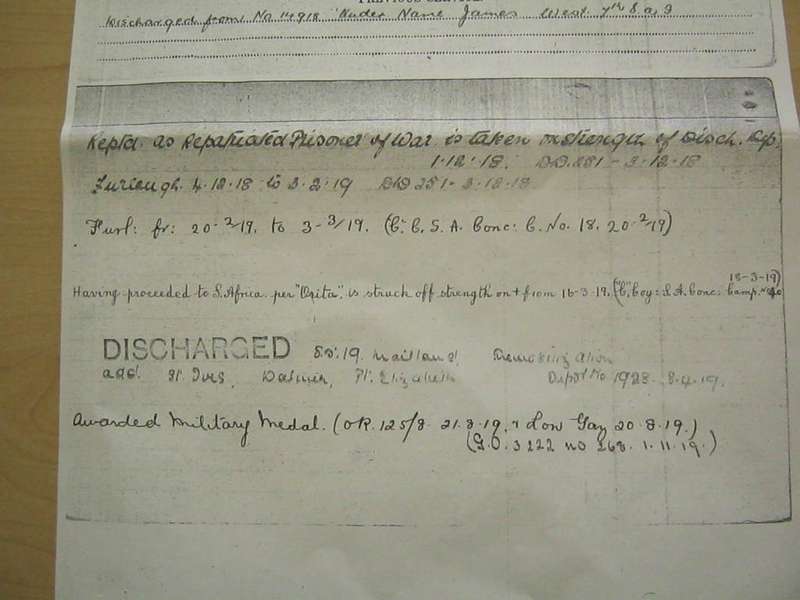 PREVIOUS SERVICE.
Discharged from No 14918 Under Name James West 7th S. a. I
Reptd. as Repatriated Prisoner of War is taken on strength of Disch. Dep.
1.12.18. DD.281 - 3.12.18
Furlough 4.12.18 to 3.2.19 DD 281 - 3.12.18
Furl: fr: 20-2/19. to 3-3/19. ("C" C. S. A. Conc: C. No. 18. 20-2/19)
18-3-19)
Having proceeded to S. Africa per "Orita", is struck off strength on + from 16-3-19. ("C" Coy: S. A. Conc: Camp. No
DISCHARGED 19. Maitland, Demobilization
add. St. Ives, Pt. Elizabeth Depot No. 1923. 8.4.19.
Awarded Military Medal. (OR. 125/8. 21.8.19. + Lon Gaz 20.8.19.)
(G.O. 3222 no 268. 1.11.19.)